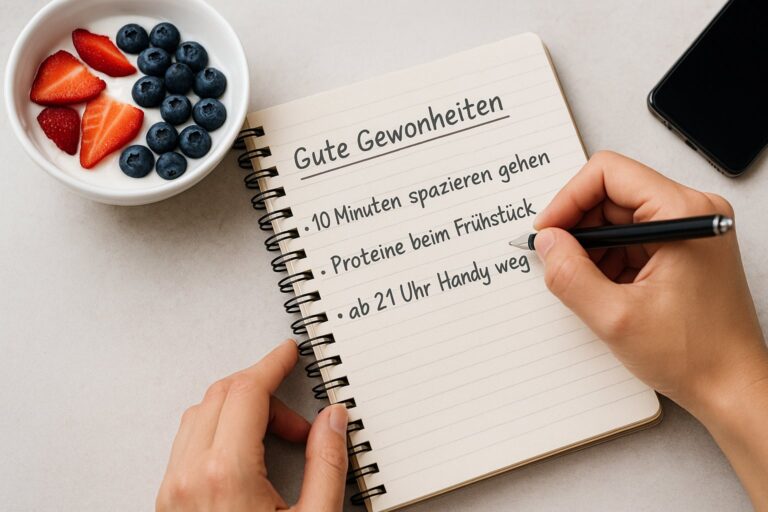 Gute Gewonheiten
• 10 Minuten spazieren gehen
• Proteine beim Frühstück
• ab 21 Uhr Handy weg